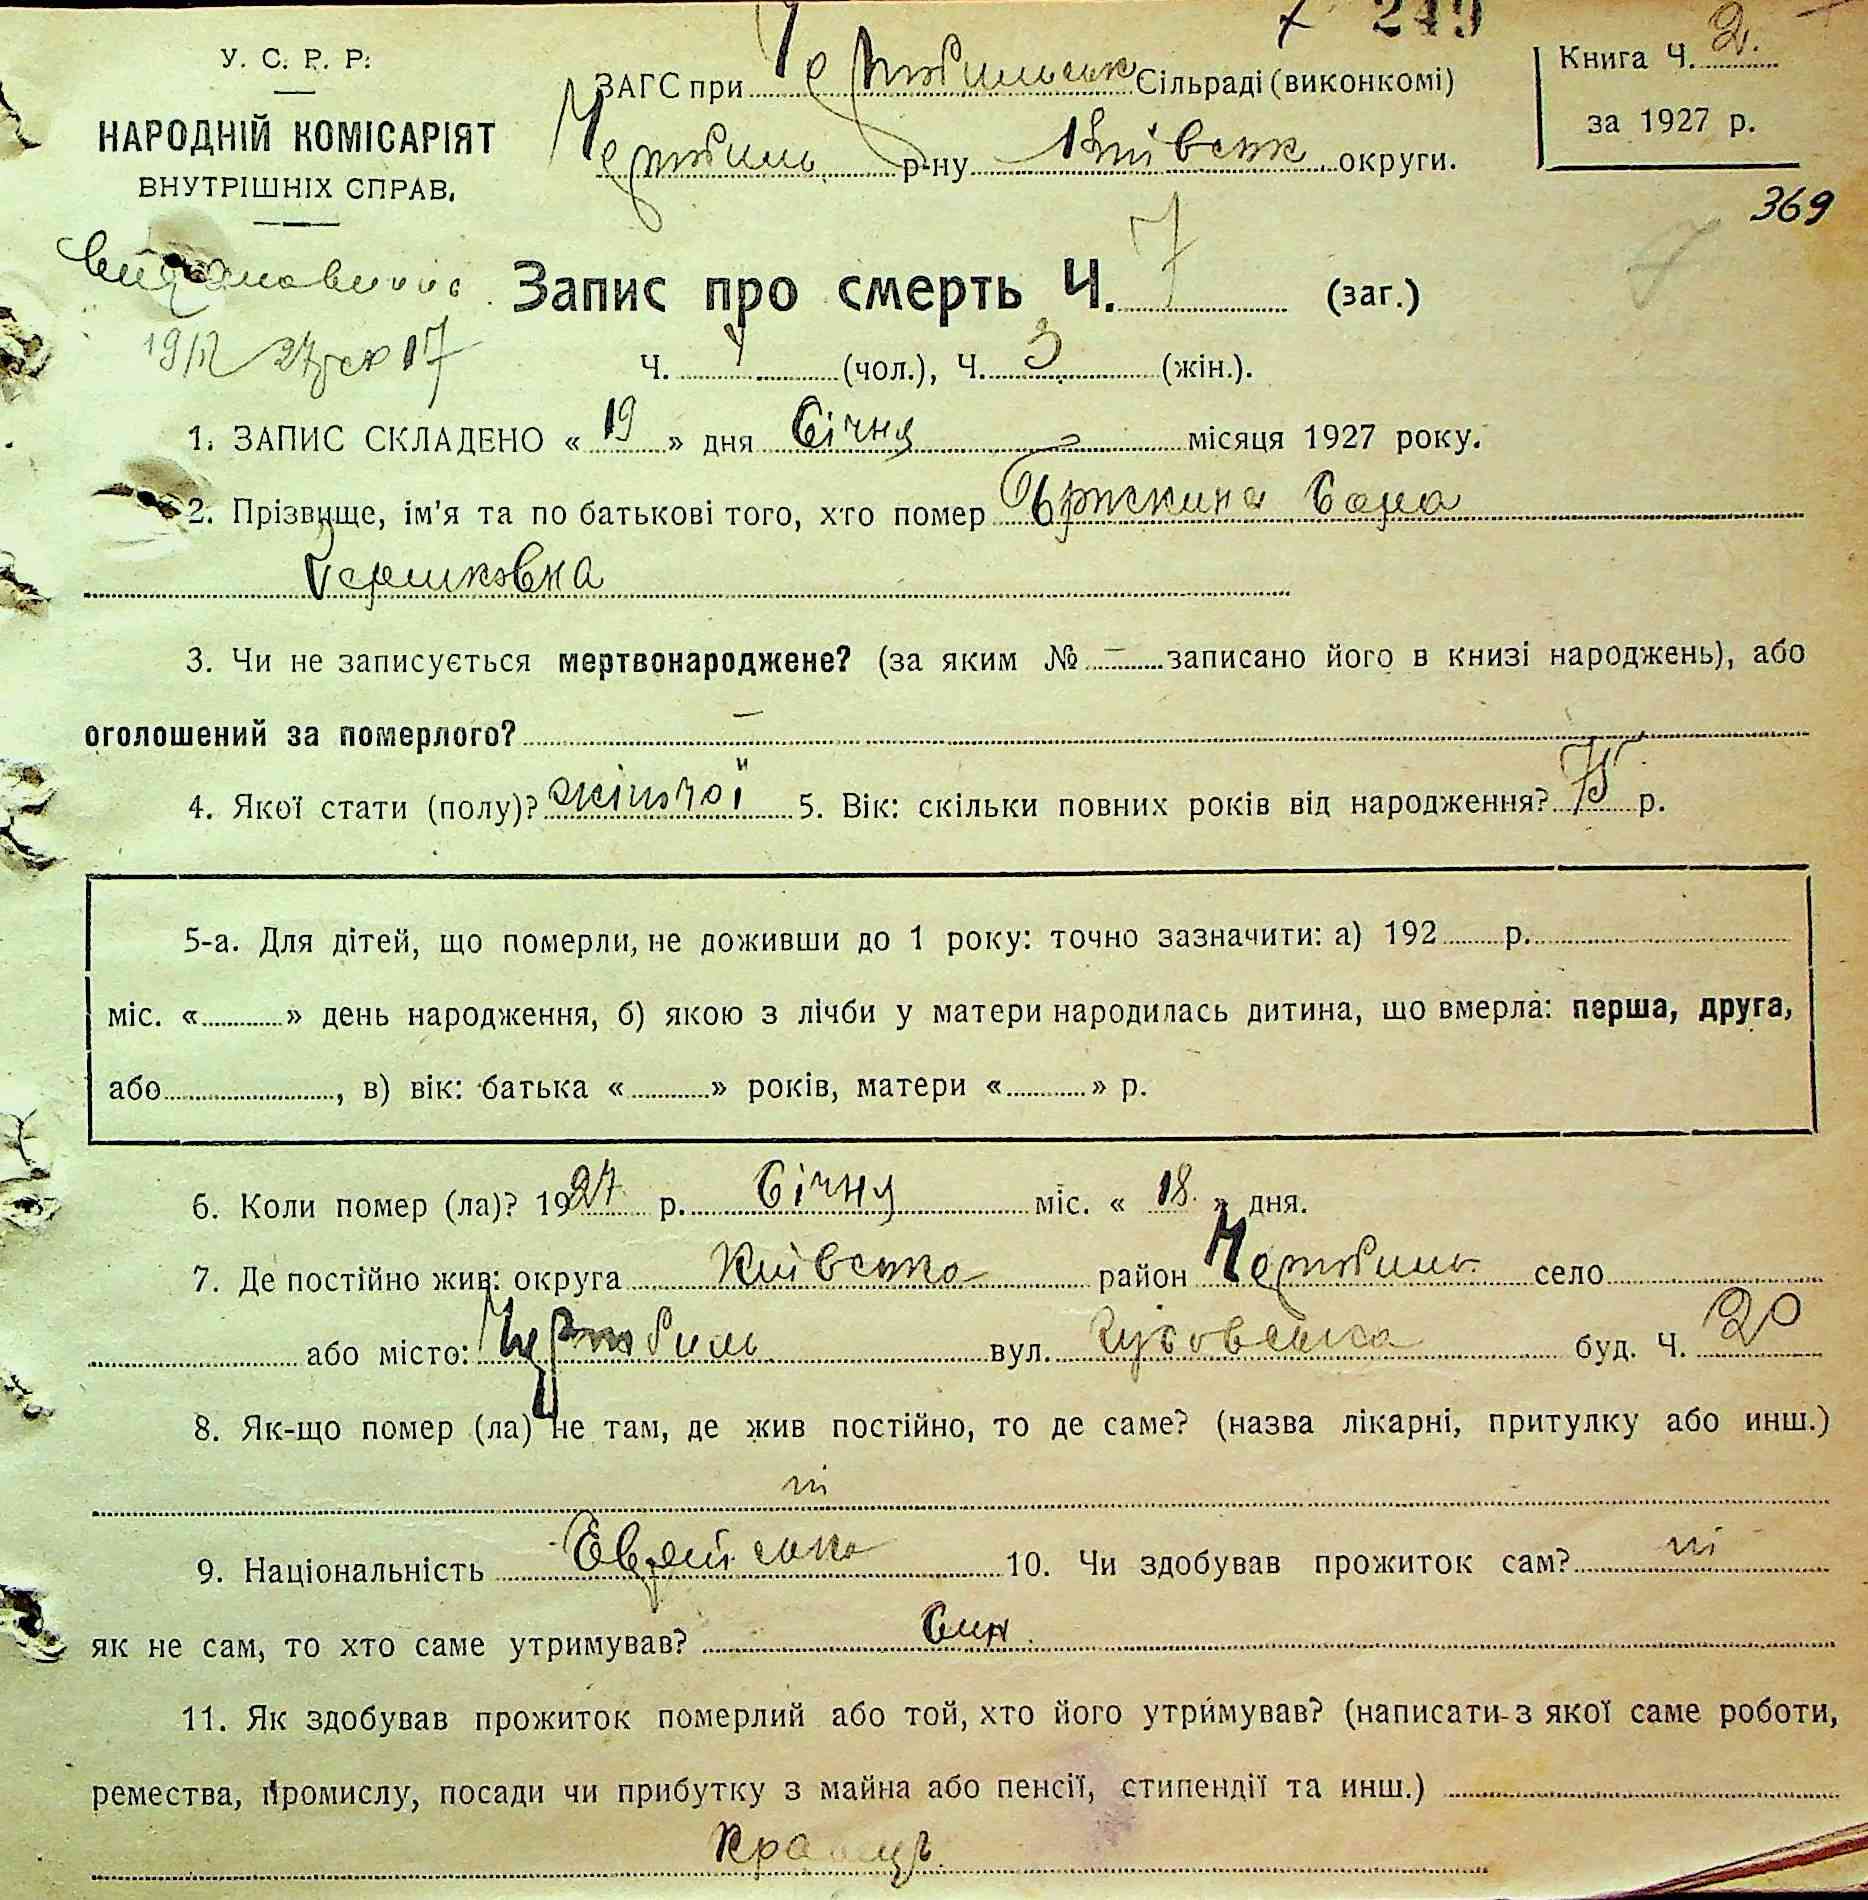 249
У. С. Р. Р.
НАРОДНІЙ КОМІСАРІЯТ
ВНУТРІШНІХ СПРАВ.
ЗАГС при Чернобильськ Сільраді (виконкомі)
Чернобиль р-ну Київськ округи.
Книга Ч. 2.
за 1927 р.
369
Запис про смерть Ч. 7 (заг.)
Ч. 4 (чол.), Ч. 3 (жін.).
1. ЗАПИС СКЛАДЕНО « 19 » дня Січня місяця 1927 року.
2. Прізвище, ім'я та по батькові того, хто помер Сара
Гершковна
3. Чи не записується мертвонароджене? (за яким № — записано його в книзі народжень), або
оголошений за померлого? —
4. Якої стати (полу)? жіночої 5. Вік: скільки повних років від народження? 75 р.
5-а. Для дітей, що померли, не доживши до 1 року: точно зазначити: а) 192 р.
міс. « » день народження, б) якою з лічби у матери народилась дитина, що вмерла: перша, друга,
або , в) вік: батька « » років, матери « » р.
6. Коли помер (ла)? 1927 р. Січня міс. « 18 » дня.
7. Де постійно жив: округа Київська район Чернобиль село
або місто: Чернобиль вул. буд. Ч. 20
8. Як-що помер (ла) не там, де жив постійно, то де саме? (назва лікарні, притулку або инш.)
ні
9. Національність Єврейська 10. Чи здобував прожиток сам? ні
як не сам, то хто саме утримував? Син
11. Як здобував прожиток померлий або той, хто його утримував? (написати з якої саме роботи,
ремества, промислу, посади чи прибутку з майна або пенсії, стипендії та инш.)
Кравець